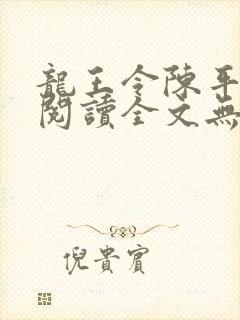 龍王令陳平
閱讀全文無
倪貴賓